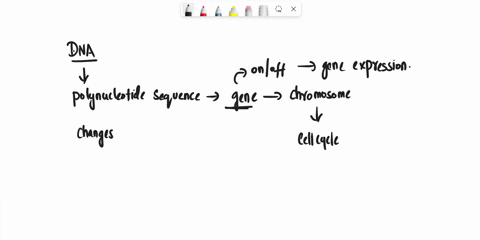 DNA
on/off → gene expression.
polynucleotide sequence → gene → chromosome
changes
cell cycle